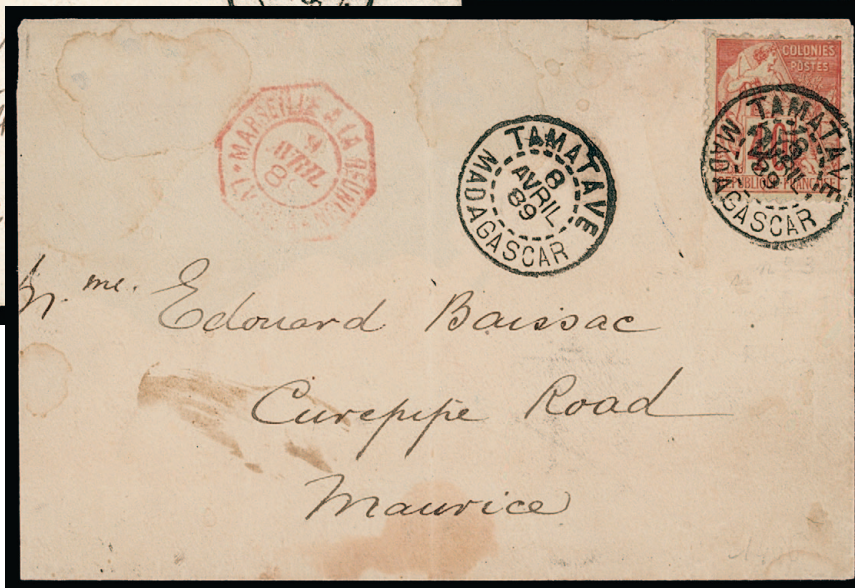 MARSEILLE A LA REUNION
9
AVRIL
TAMATAVE
8
AVRIL
89
MADAGASCAR
COLONIES
POSTES
TAMATAVE
8
AVRIL
89
MADAGASCAR
Mme. Edouard Baissac
Curepipe Road
Maurice